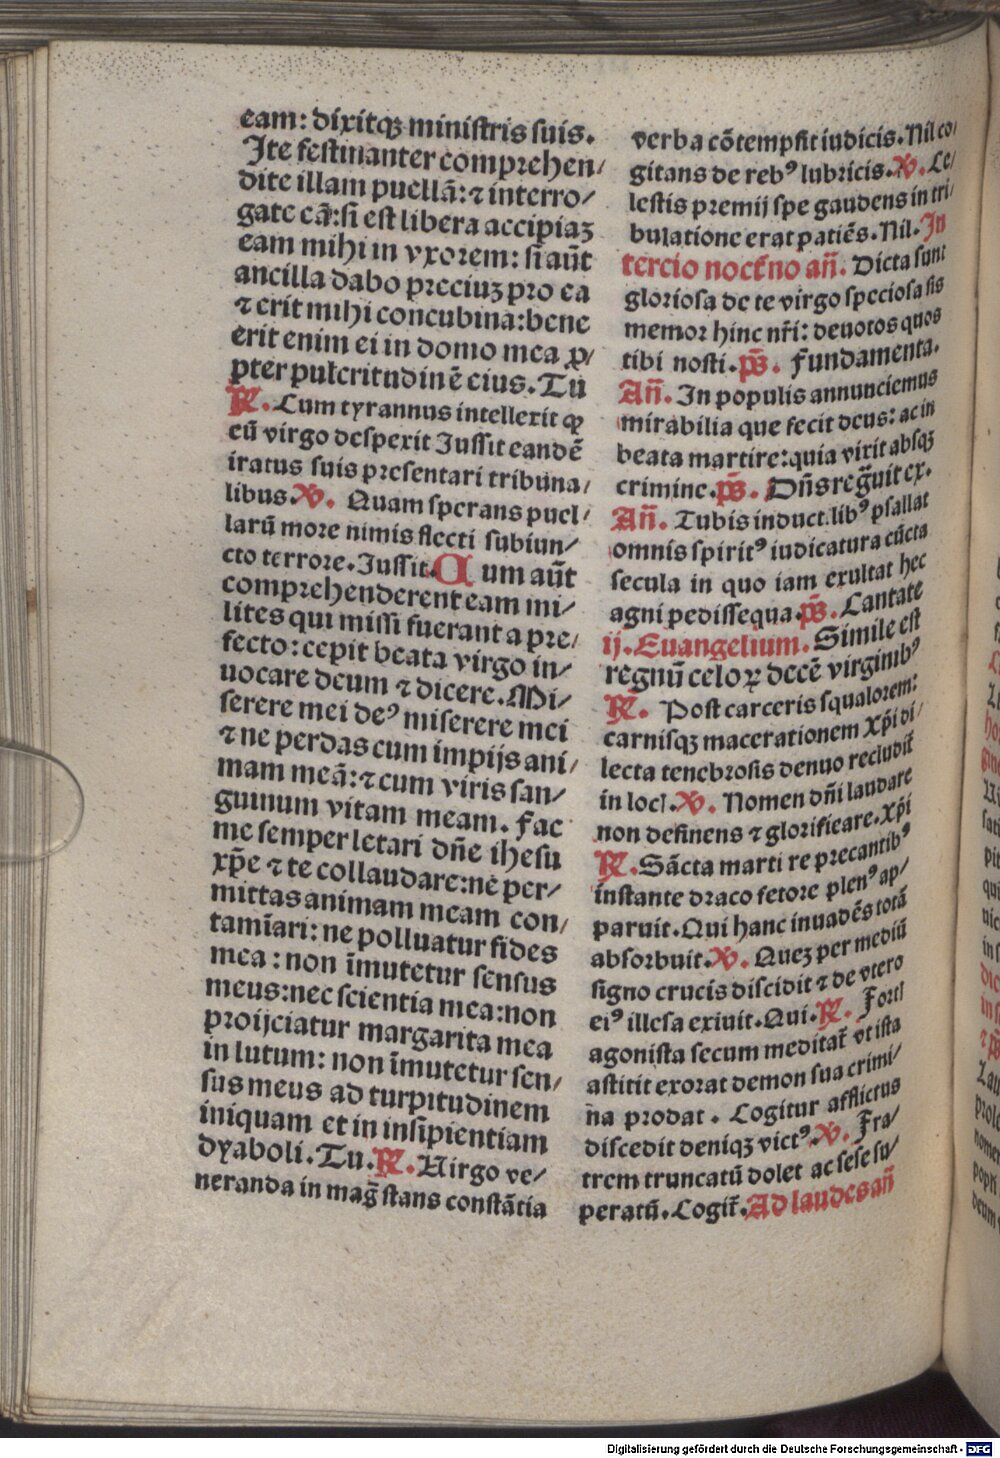 eam: dixitqꝫ ministris suis.
Ite festinanter comprehen/
dite illam puellā: ⁊ interro/
gate eā: si est libera accipiaꝫ
eam mihi in vxorem: si aūt
ancilla dabo preciuꝫ pro ea
⁊ erit mihi concubina: bene
erit enim ei in domo mea ꝓ/
pter pulcritudinē eius. Tu
℟. Cum tyrannus intellexit ꝙ
eū virgo despexit Jussit eandē
iratus suis presentari tribuna/
libus. ℣. Quam sperans puel/
larū more nimis flecti subiun/
cto terrore. Jussit. Cum aūt
comprehenderent eam mi/
lites qui missi fuerant a pre/
fecto: cepit beata virgo in/
uocare deum ⁊ dicere. Mi/
serere mei deꝰ miserere mei
⁊ ne perdas cum impijs ani/
mam meā: ⁊ cum viris san/
guinum vitam meam. Fac
me semper letari dn̄e ihesu
xp̄e ⁊ te collaudare: ne per/
mittas animam meam con/
tamīari: ne polluatur fides
mea: non īmutetur sensus
meus: nec scientia mea: non
proijciatur margarita mea
in lutum: non īmutetur sen/
sus meus ad turpitudinem
iniquam et in insipientiam
dyaboli. Tu. ℟. Uirgo ve/
neranda in maḡ stans constātia
verba cōtempsit iudicis. Nil co/
gitans de rebꝰ lubricis. ℣. Ce/
lestis premij spe gaudens in tri/
bulatione erat patiēs. Nil. In
tercio noct̄no an̄. Dicta sunt
gloriosa de te virgo speciosa sis
memor hinc nr̄i: deuotos quos
tibi nosti. ps̄. Fundamenta.
An̄. In populis annunciemus
mirabilia que fecit deus: ac in
beata martire: quia vixit absqꝫ
crimine. ps̄. Dn̄s reg̅uit ex.
An̄. Tubis induct. libꝰ psallat
omnis spiritꝰ iudicatura cūcta
secula in quo iam exultat hec
agni pedissequa. ps̄. Cantate
ij. Euangelium. Simile est
regnū celoꝝ decē virginibꝰ
℟. Post carceris squalorem:
carnisqꝫ macerationem xp̄i di/
lecta tenebrosis denuo recludit̄
in locl. ℣. Nomen dn̄i laudare
non definens ⁊ glorificare. xp̄i
℟. Sācta marti re precantibꝰ
instante draco fetore plenꝰ ap/
paruit. Qui hanc inuadēs totā
absorbuit. ℣. Queꝫ per mediū
signo crucis discidit ⁊ de vtero
eiꝰ illesa exiuit. Qui. ℟. Forti
agonista secum meditat̄ vt ista
astitit exorat demon sua crimi/
na prodat. Cogitur afflictus
discedit deniqꝫ victꝰ. ℣. Fra/
trem truncatū dolet ac sese su/
peratū. Cogit̄. Ad laudes an̄
Digitalisierung gefördert durch die Deutsche Forschungsgemeinschaft - DFG